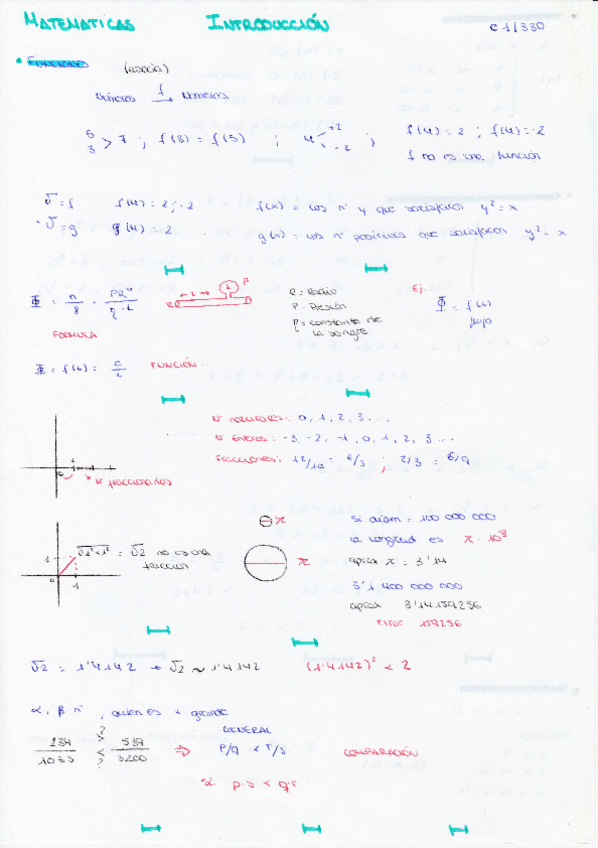 MATEMATICAS INTRODUCCIÓN C 1/330
FUNCIONES (asocia)
Números f→ Números
5 3 > 7 ; f(3) = f(5) ; 4 < +2 -2 ; f(4)=2 ; f(4)=-2
f no es una función
√ = f f(4) = 2 ; -2 f(x) = los nº y que satisfacen y² = x
√ = g g(4) = 2 g(x) = los nº positivos que satisfacen y² = x
R = Radio Ej.
P = Presión Φ = f(L)
η = constante de la sangre flujo
FORMULA
Φ = f(L) = C/L FUNCIÓN.
Nº naturales: 0, 1, 2, 3 ...
Nº Enteros: -3, -2, -1, 0, 1, 2, 3 ...
Fracciones: 12/10 = 6/5 ; 2/3 = 6/9
Nº fraccionarios
π Si diam = 100 000 000
√1²+1² = √2 no es una fracción π la longitud es π · 10⁸
aprox π = 3'14
3'1 400 000 000
aprox 3'14159256
error 159256
√2 = 1'4142 → √2 ≈ 1'4142 (1'4142)² < 2
α, β nº, quien es + grande
GENERAL
⇒ P/q < r/s COMPARACIÓN
si p·s < q·r